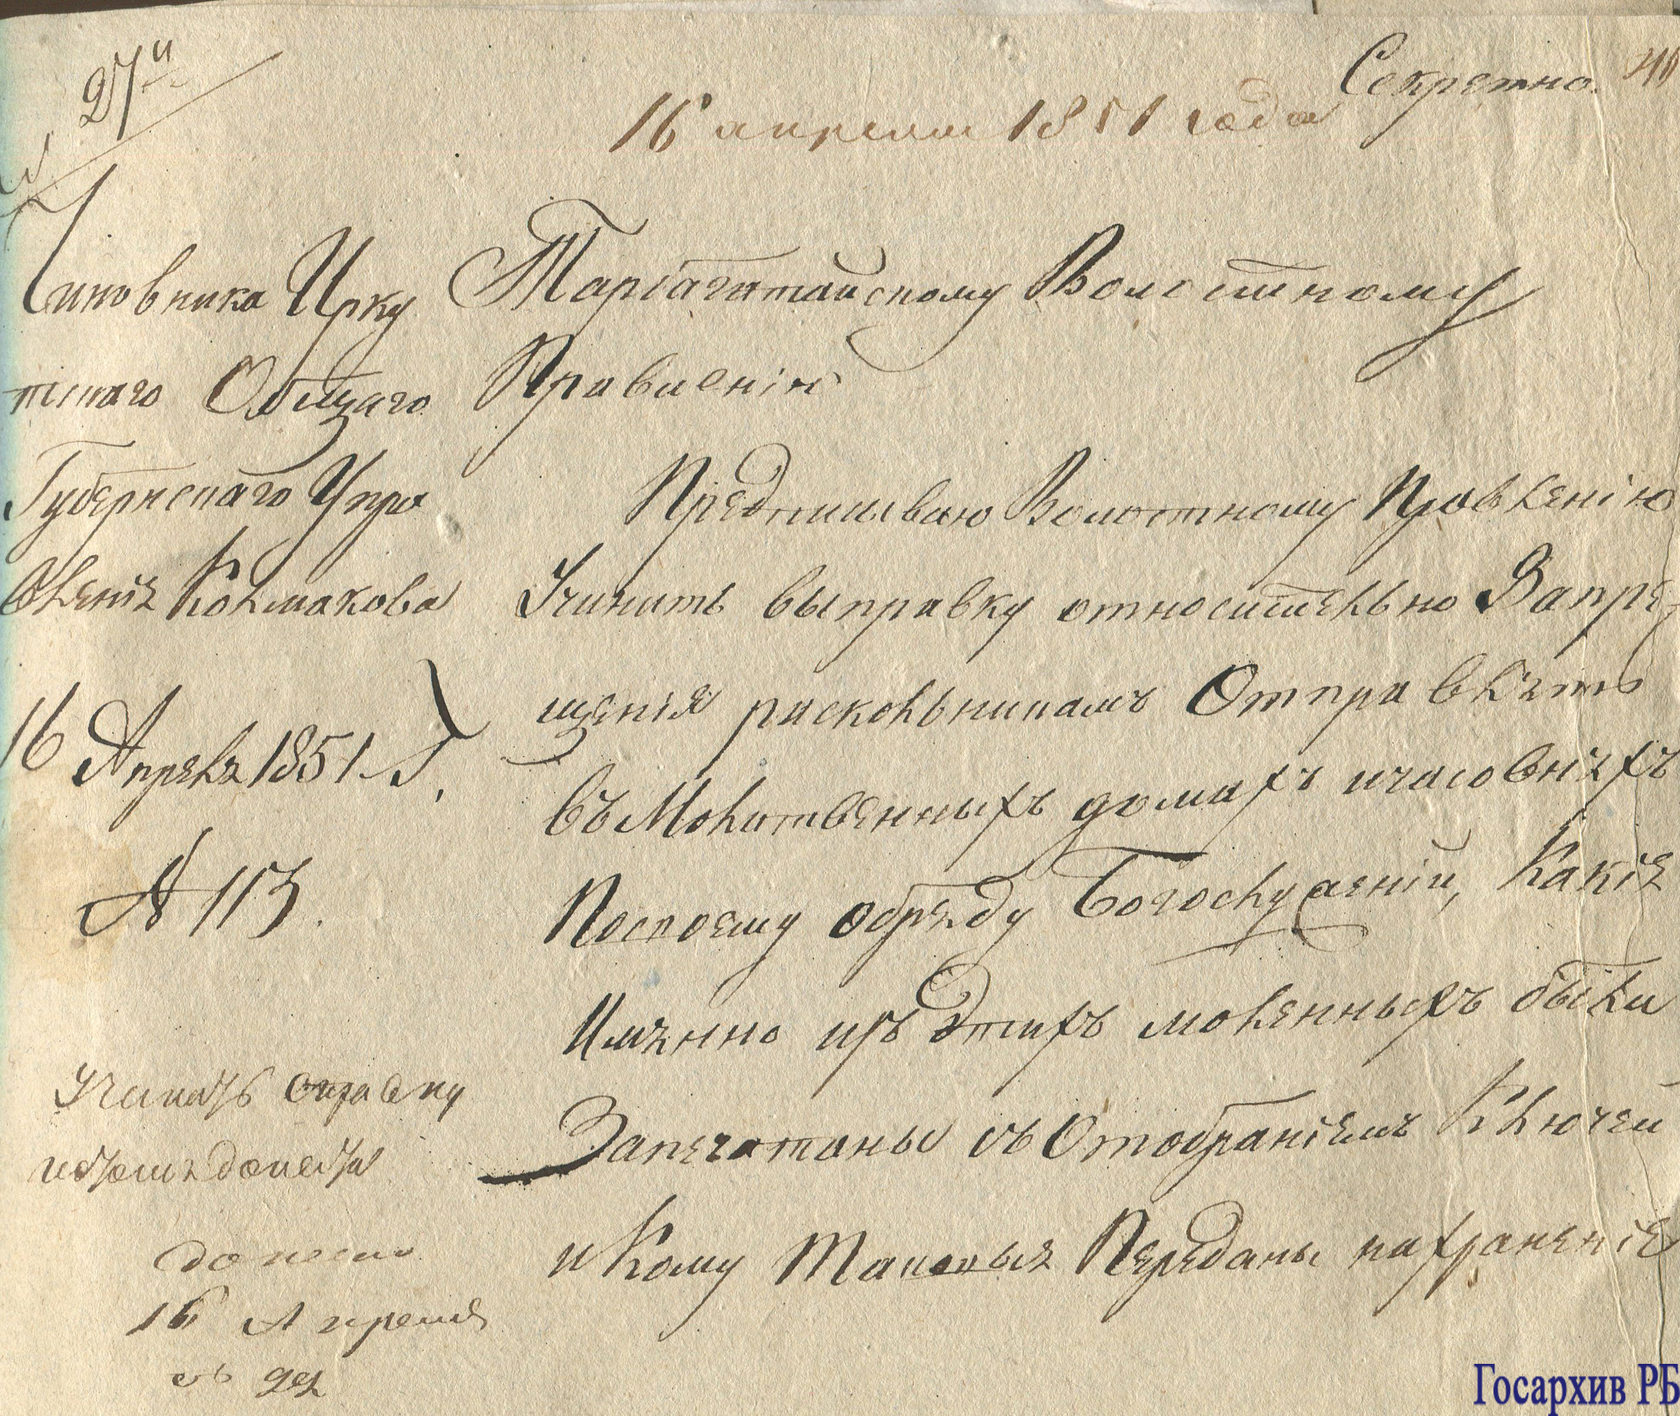 27
Секретно.
16 апреля 1851 года
Чиновника Ирку
тскаго Общаго
Губернскаго Упра
вленія Колмакова
16 Апреля 1851 Г.
№ 113.
Учинить справку
и обѣ донести
донесено
16 Апреля
Тарбагатайскому Волостному
Правленію
Предписываю Волостному Правленію
Учинить выправку относительно Запре
щенія раскольникамъ Отправлять
въ Молитвенныхъ домахъ и часовняхъ
По своему обряду Богослуженій, Какіе
Именно изъ Этихъ моленныхъ были
Запечатаны съ Отобраніемъ Ключей
и Кому Таковые Переданы на храненіе
Госархив РБ